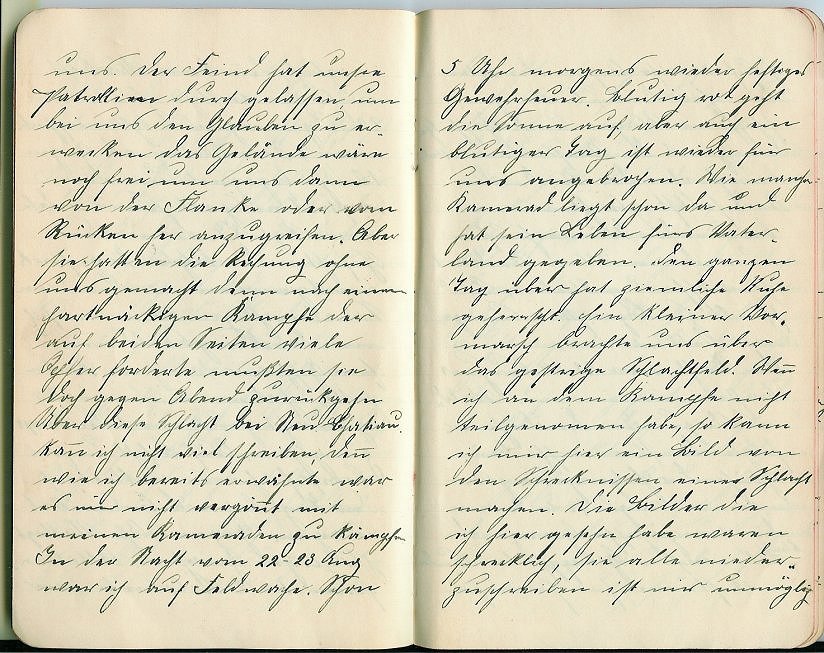 uns. Der Feind hat unsre
Patrollien durch gelassen, um
bei uns den Glauben zu er-
wecken das Gelände wäre
noch frei um uns dann
von der Flanke oder vom
Rücken her anzugreifen. Aber
sie hatten die Rechnung ohne
uns gemacht denn nach einem
hartnäckigen Kampfe der
auf beiden Seiten viele
Opfer forderte mußten sie
doch gegen Abend zurückgehn
Über diese Schlacht bei Neu
kann ich nicht viel schreiben, denn
wie ich bereits erwähnte war
es mir nicht vergönnt mit
meinen Kameraden zu kämpfen
In der Nacht vom 22-23 Aug
war ich auf Feldwache. Schon
5 Uhr morgens wieder heftiges
Gewehrfeuer. Blutig rot geht
die Sonne auf, aber auch ein
blutiger Tag ist wieder für
uns angebrochen. Wie mancher
Kamerad liegt schon da und
hat sein Leben fürs Vater-
land gegeben. Den ganzen
Tag über hat ziemliche Ruhe
geherrscht. Ein kleiner Vor-
marsch brachte uns über
das gestrige Schlachtfeld. Wenn
ich an dem Kampfe nicht
teilgenomen habe, so kann
ich mir hier ein Bild von
den Schrecknissen einer Schlacht
machen. Die Bilder die
ich hier gesehn habe waren
schrecklich, sie alle nieder-
zuschreiben ist mir unmöglich